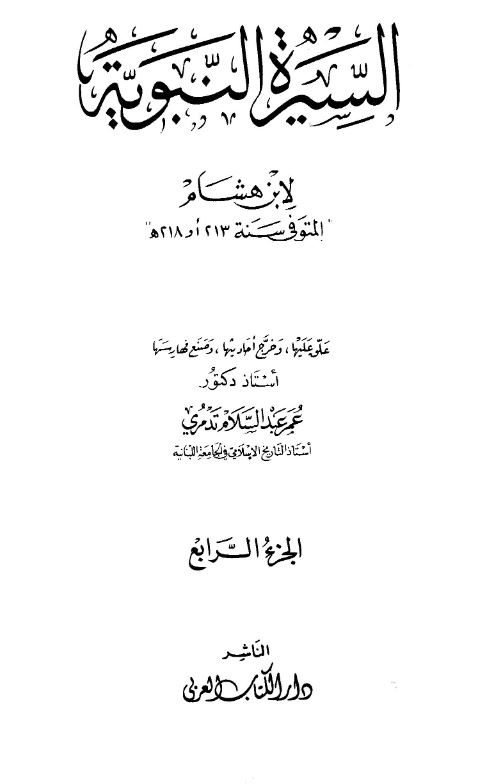 السِّيرَة النَّبَويَّة
لِابْن هشَام
"المتوفى سَنة ٢١٣ أو ٢١٨ هـ"
علّق عَليَها، وَخرَّج أحَاديثها، وَصَنع فهَارسَها
أسْتاذ دكتوُر
عُمَر عَبْد السَّلام تَدْمُري
أستاذ التاريخ الإسْلاميّ في الجَامعَة اللبْنانية
الجزءُ الـرَّابع
النَاشِر
دَار الكتَاب العَربي